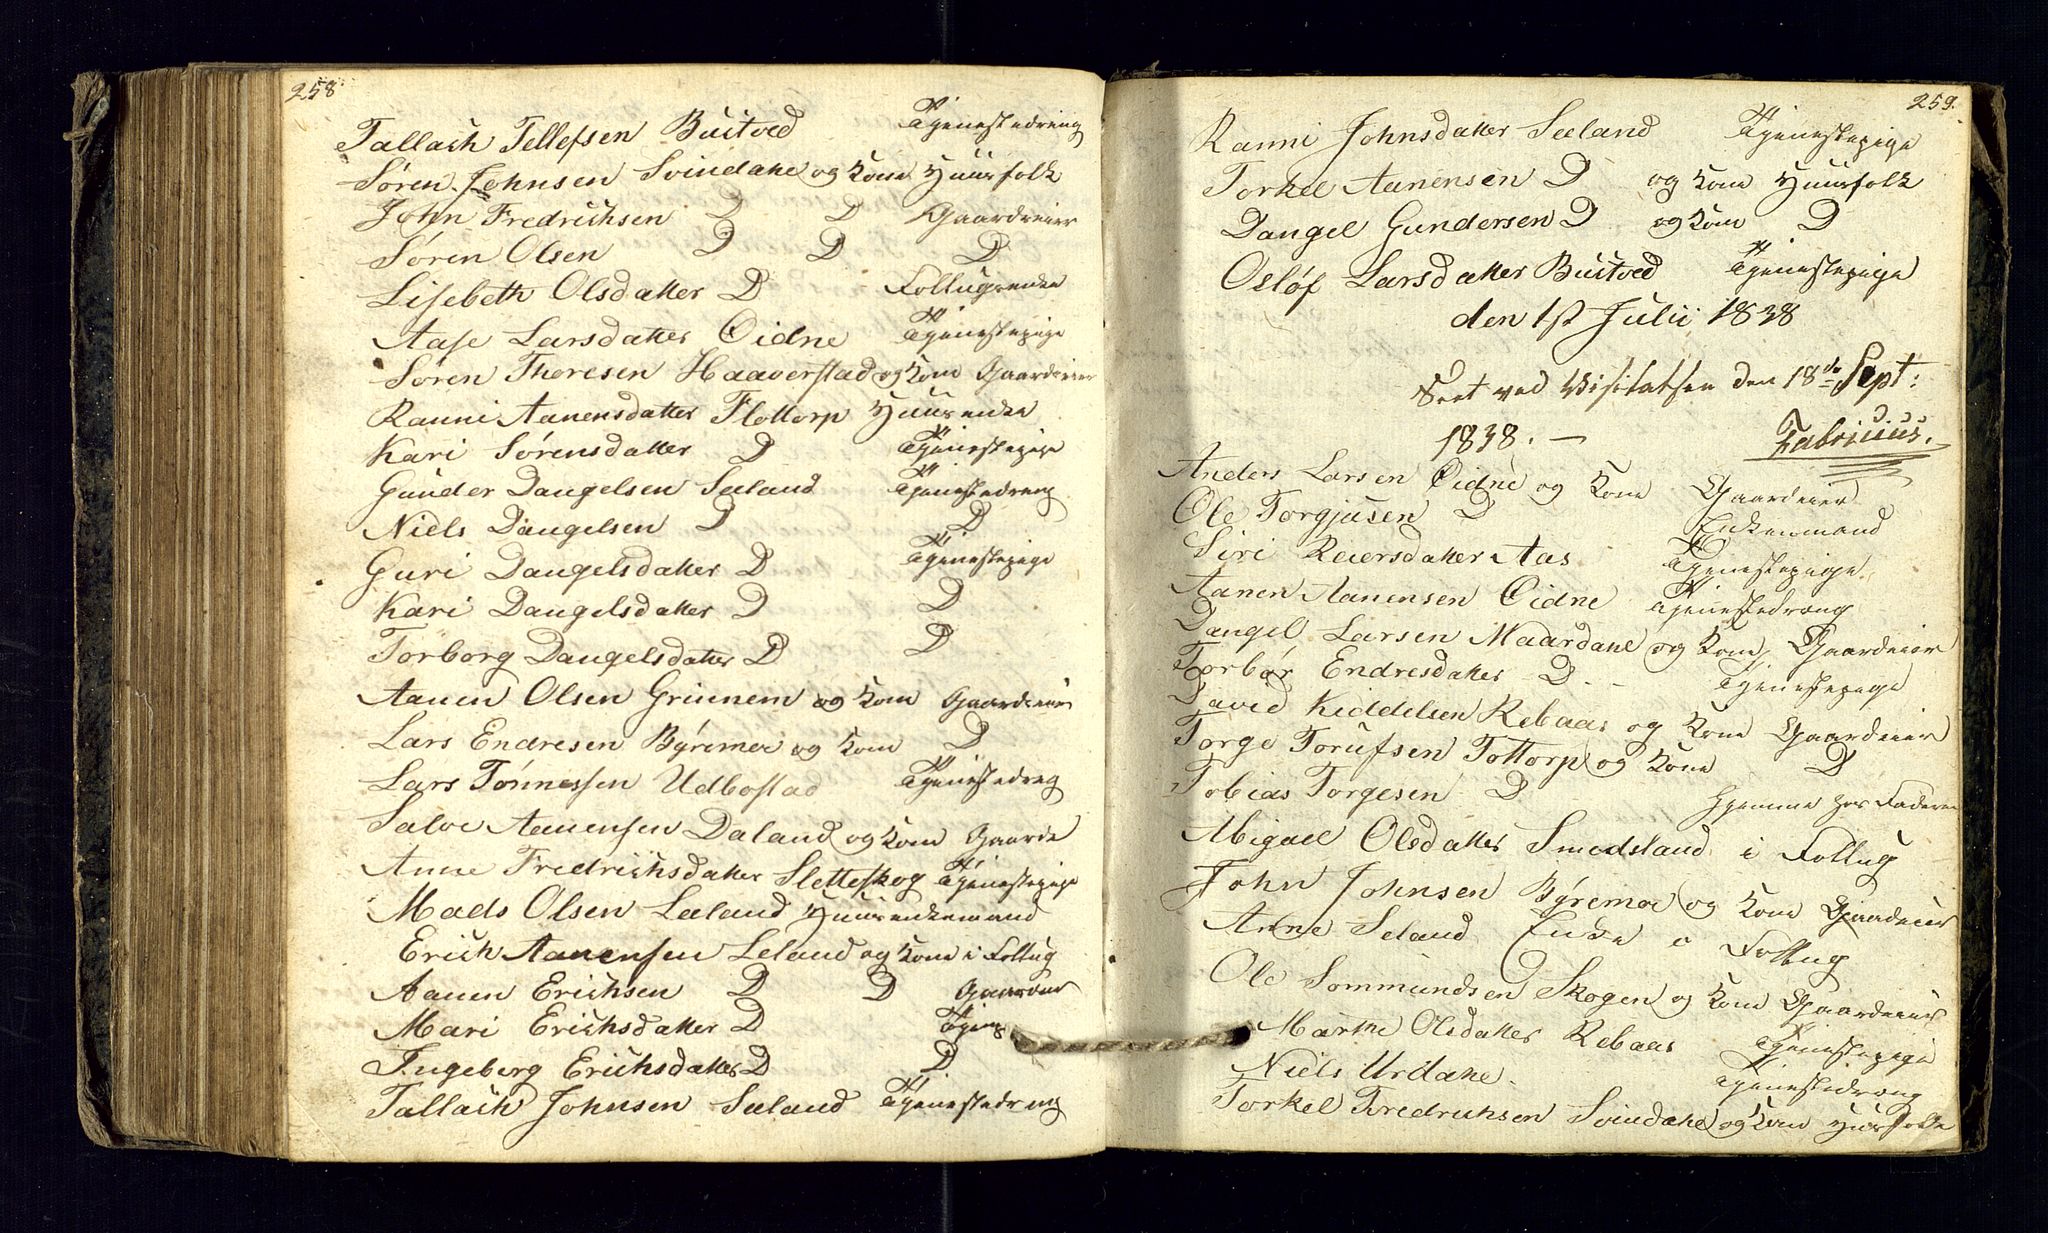 258
Tallach Tellefsen Bustved Tjenestedreng
Søren Johnsen Svindahe og Kone Huusfolk
John Fredrichsen D D Gaardeier
Søren Olsen D D D
Lisebeth Olsdatter D Follugsenke
Aase Larsdatter Øidne Tjenestepige
Søren Thoresen Haaverstad og Kone Gaardeier
Ranni Aanensdatter Flottorp Huusenke
Kari Sørensdatter D Tjenestepige
Gunder Daugelsen Seeland Tjenestedreng
Niels Daugelsen D D
Guri Daugelsdatter D Tjenestepige
Kari Daugelsdatter D D
Torborg Daugelsdatter D D
Aanen Olsen Griinem og Kone Gaardeier
Lars Endresen Byremoe og Kone D
Lars Tønnessen Udbostad Tjenestedreg
Salve Aanensen Daland og Kone Gaarde
Anne Fredrichsdatter Sletteskog Tjenestepige
Mads Olsen Leland Huusenkemand
Erich Aanensen Leland og Kone i Follug
Aanen Erichsen D D Gaardeier
Mari Erichsdatter D Tjen
Ingeborg Erichsdatter D D
Tallach Johnsen Seeland Tjenestedreng
259.
Ranni Johnsdatter Seeland Tjenestepige
Torkel Aanensen D og Kone Huusfolk
Daugel Gundersen D og Kone D
Osløf Larsdatter Bustved Tjenestepige
den 1st Julii 1838
Seet ved Visitatsen den 18de Sept:
1838. — Fabricius.
Anders Larsen Øidne og Kone Gaardeier
Ole Torgjusen D Enkemand
Siri Reiersdatter Aas Tjenestepige
Aanen Aanensen Øidne Tjenestedreng
Daugel Larsen Maardahe og Kone Gaardeier
Torbor Endresdatter D. - Tjenestepige
David Kiddelsen Rebaas og Kone Gaardeier
Torge Torufsen Tottorp og Kone D
Tobias Torgesen D Hjemme hos Faderen
Abigael Olsdatter Smedsland i Follug
John Johnsen Byremoe og Kone Gaardeier
Anne Seland Enke i Follug
Ole Sommundsen Skogen og Kone Gaardeier
Marthe Olsdatter Rebaas Tjenestepige
Niels Urdahe. Tjenestedreng
Torkel Fredrichsen Svindahe og Kone Huusfolk